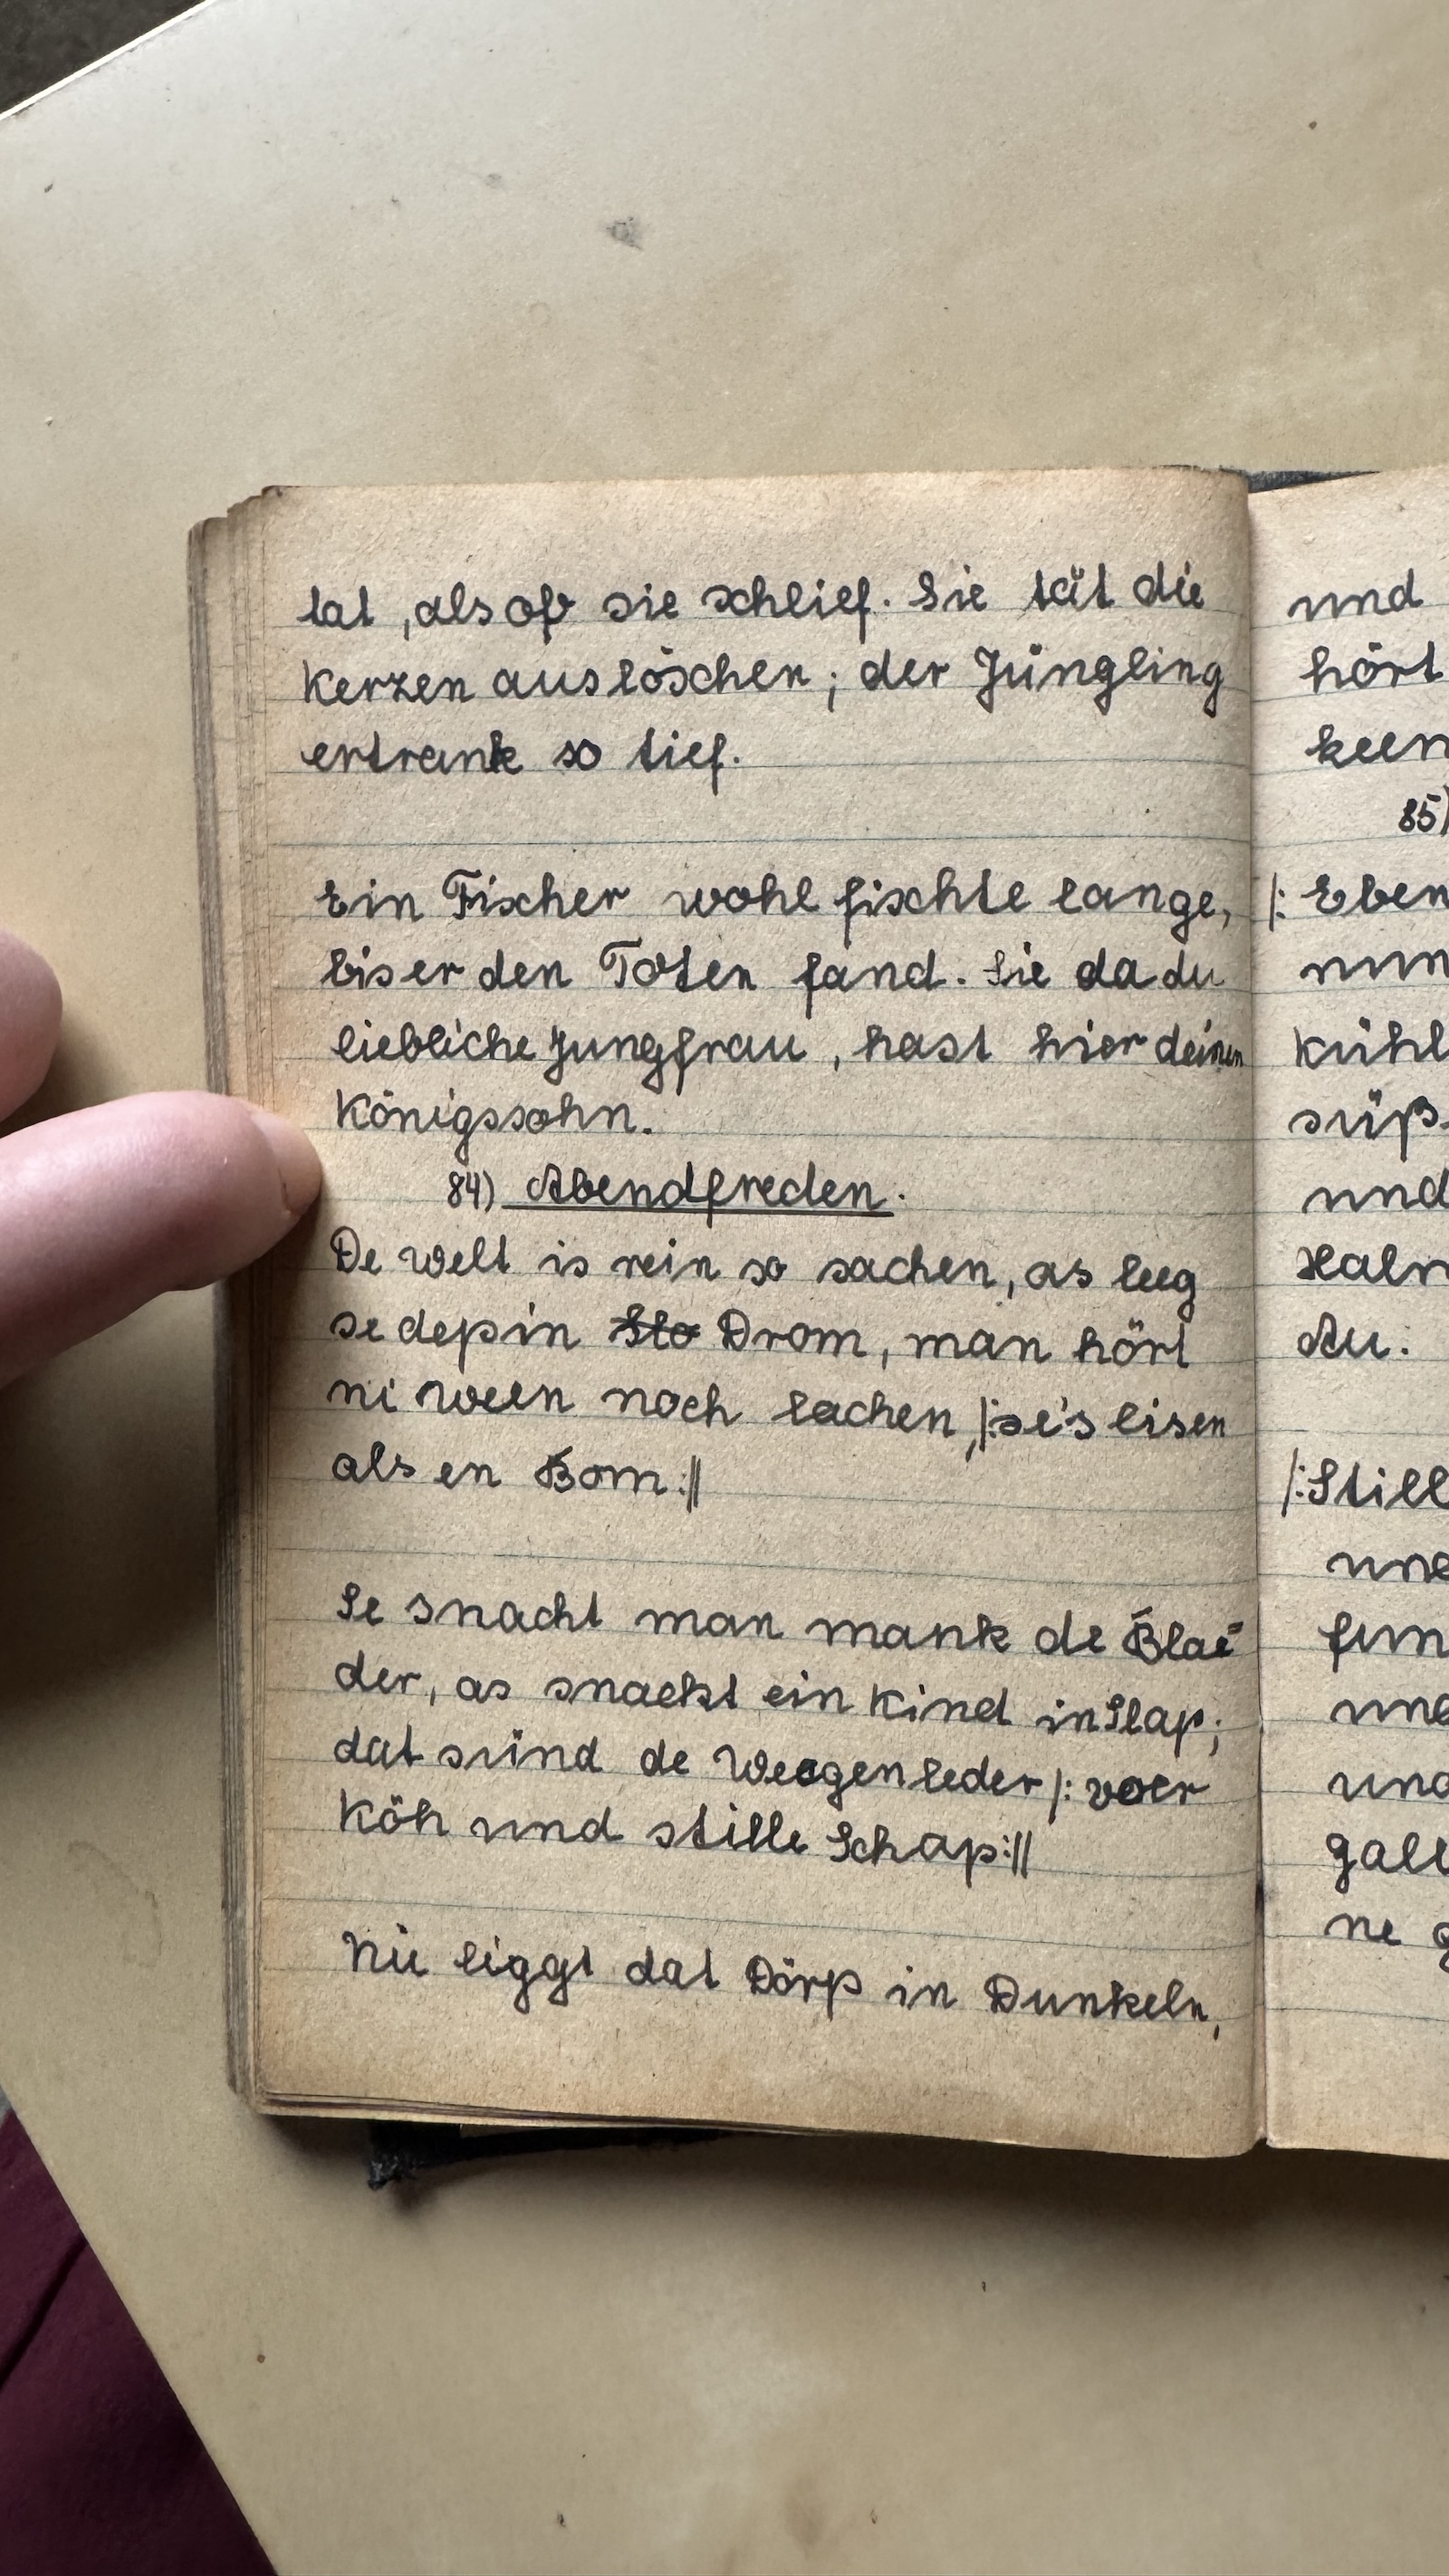 tat, als of sie schlief. Sie tät die
Kerzen auslöschen; der Jüngling
ertrank so tief.
Ein Fischer wohl fischte lange,
bis er den Toten fand. Sie da du
liebliche Jungfrau, hast hier deinen
Königssohn.
84) Abendfreden.
De Welt is rein so sachen, as leeg
se dep in Sto Drom, man hört
ni ween noch lachen, |: se's lisen
als en Bom :||
Se snacht man mank de Blae=
der, as snackt ein Kind in Slap;
dat sünd de Weegenleder |: voer
Köh und stille Schap :||
Nu liggt dat Dörp in Dunkeln,
und
hört
keen
85)
|: Eben
nun
kühl
süß.
und
Halm
Au.
|: Still
und
fun
und
und
gall
ne g